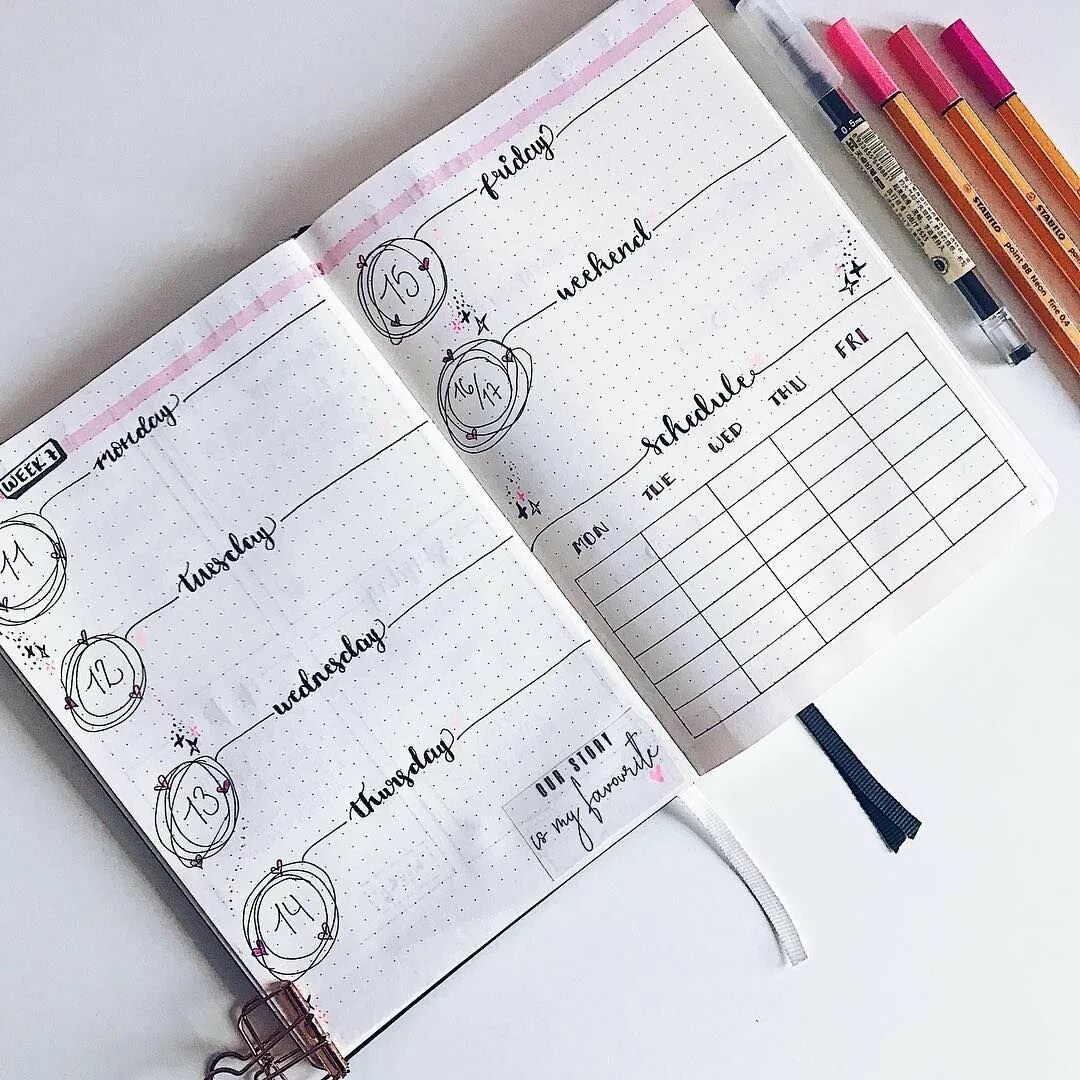 WEEK 7
monday
11
tuesday
12
wednesday
13
thursday
14
OUR STORY
is my favourite
friday
15
weekend
16/17
schedule
MON TUE WED THU FRI
0.5mm
STABILO point 88 Neon fine 0,4
STABILO point 88